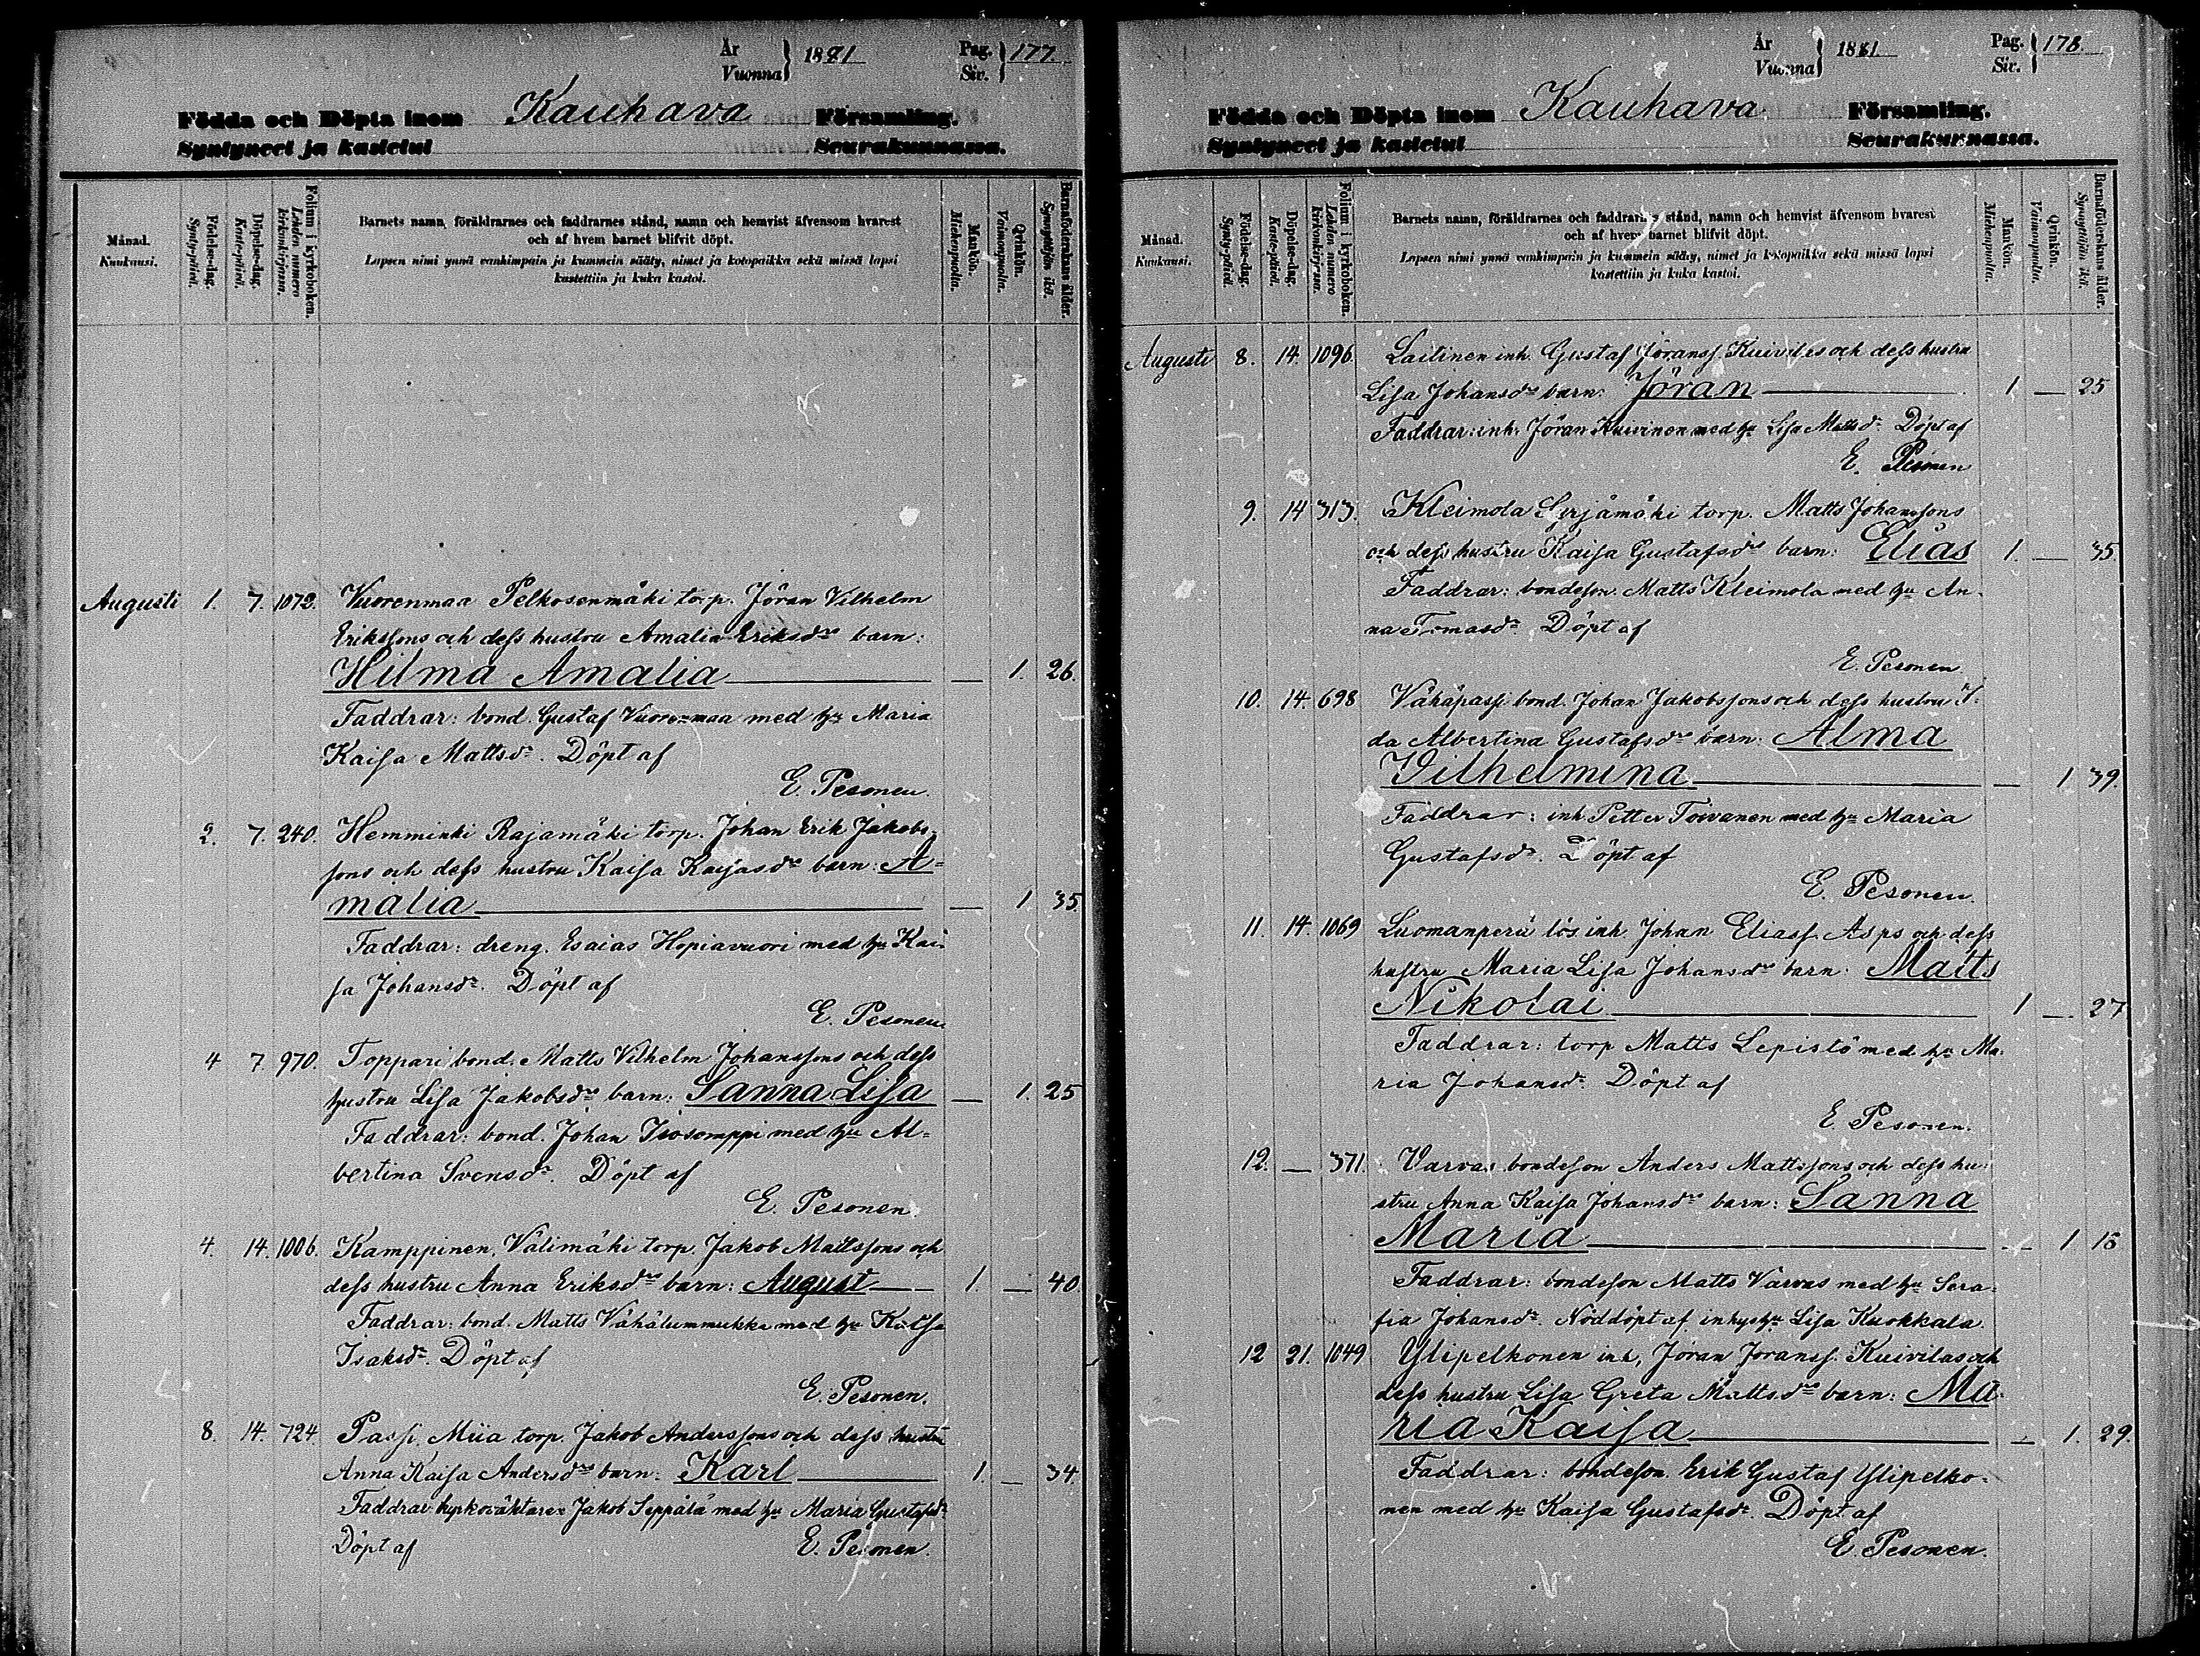 År
Vuonna } 1881
Pag.
Siv. } 177.
Födda och Döpta inom Kauhava Församling.
Syntyneet ja kastetut Seurakunnassa.
Månad.
Kuukausi.
Födelse-dag.
Synty-päivä.
Döpelse-dag.
Kaste-päivä.
Folium i kyrkoboken.
Lehden numero kirkonkirjassa.
Barnets namn, föräldrarnes och faddrarnes stånd, namn och hemvist äfvensom hvarest
och af hvem barnet blifvit döpt.
Lapsen nimi ynnä vanhimpain ja kummein sääty, nimet ja kotopaikka sekä missä lapsi
kastettiin ja kuka kastoi.
Mankön.
Miehenpuolia.
Qvinkön.
Vaimonpuolia.
Barnaföderskans ålder.
Synnyttäjän ikä.
Augusti 1. 7. 1072. Vuorenmaa Pelkosenmäki torp. Jöran Vilhelm
Erikssons och dess hustru Amalia Eriksdrs barn:
Hilma Amalia — — 1. 26.
Faddrar: bond. Gustaf Vuorenmaa med hu Maria
Kaisa Mattsdr. Döpt af
E. Pesonen.
2. 7. 240. Hemminki Rajamäki torp. Johan Erik Jakobs-
sons och dess hustru Kaisa Kaisasdrs barn: A-
malia — — 1 35.
Faddrar: dreng. Esaias Hopiavuori med hu Kai-
sa Johansdr. Döpt af
E. Pesonen.
4 7. 970. Toppari bond. Matts Vilhelm Johanssons och dess
hustru Lisa Jakobsdrs barn: Sanna Lisa — 1. 25
Faddrar: bond. Johan Isosomppi med hu Al-
bertina Svensdr. Döpt af
E. Pesonen.
4. 14. 1006. Kamppinen, Välimäki torp. Jakob Mattssons och
dess hustru Anna Eriksdrs barn: August — 1. — 40.
Faddrar: bond. Matts Vähälummukka med hu Kaisa
Isaksdr. Döpt af
E. Pesonen.
8. 14. 724. Passi, Miia torp. Jakob Anderssons och dess hustru
Anna Kaisa Andersdrs barn: Karl — 1. — 34
Faddrar: Jakob Seppälä med hu Maria Gustafsdr
Döpt af E. Pesonen.
År
Vuonna } 1881
Pag.
Siv. } 178.
Födda och Döpta inom Kauhava Församling.
Syntyneet ja kastetut Seurakunnassa.
Månad.
Kuukausi.
Födelse-dag.
Synty-päivä.
Döpelse-dag.
Kaste-päivä.
Folium i kyrkoboken.
Lehden numero kirkonkirjassa.
Barnets namn, föräldrarnes och faddrarnes stånd, namn och hemvist äfvensom hvarest
och af hvem barnet blifvit döpt.
Lapsen nimi ynnä vanhimpain ja kummein sääty, nimet ja kotopaikka sekä missä lapsi
kastettiin ja kuka kastoi.
Mankön.
Miehenpuolia.
Qvinkön.
Vaimonpuolia.
Barnaföderskans ålder.
Synnyttäjän ikä.
Augusti 8. 14. 1096. Laitinen inh. Gustaf Jöranss. Kuivilas och dess hustru
Lisa Johansdrs barn: Jöran — 1. — 25
Faddrar: inh. Jöran Kuivinen med hu Lisa Mattsdr. Döpt af
E. Pesonen
9. 14 313. Kleimola Syrjämäki torp. Matts Johanssons
och dess hustru Kaisa Gustafsdrs barn: Elias 1. — 35
Faddrar: bondeson. Matts Kleimola med hu An-
na Tomasdr. Döpt af
E. Pesonen
10. 14. 698 Vähäpassi bond. Johan Jakobssons och dess hustru I-
da Albertina Gustafsdrs barn: Alma
Vilhelmina — — 1 39.
Faddrar: inh Petter Toivanen med hu Maria
Gustafsdr. Döpt af
E. Pesonen.
11. 14. 1069 Luomanperä lös. inh Johan Eliass. Asps och dess
hustru Maria Lisa Johansdrs barn: Matts
Nikolai — 1 — 27
Faddrar: torp Matts Lepistö med hu Ma-
ria Johansdr. Döpt af
E. Pesonen.
12. — 371. Varvas bondeson Anders Mattssons och dess hu-
stru Anna Kaisa Johansdrs barn: Sanna
Maria — — 1 18
Faddrar: bondeson Matts Varvas med hu Sera-
fia Johansdr. Nöddöpt af inhyshu Lisa Kuokkala.
12 21. 1049 Ylipelkonen inh, Jöran Jöranss. Kuivilas och
dess hustru Lisa Greta Mattsdrs barn: Ma-
ria Kaisa — — 1. 29.
Faddrar: bondeson Erik Gustaf Ylipelko-
nen med hu Kaisa Gustafsdr. Döpt af
E. Pesonen.